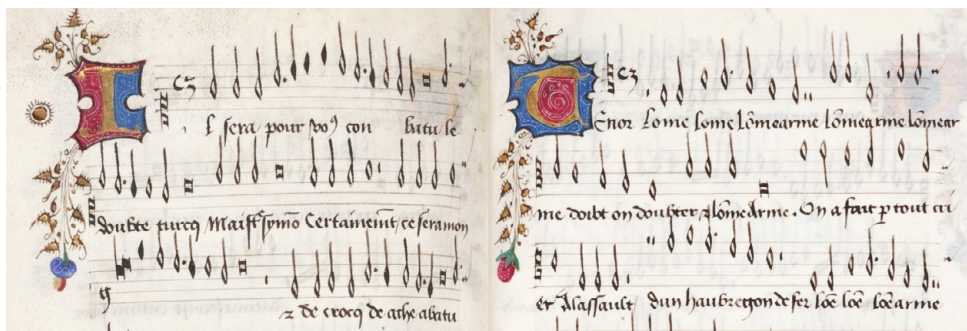 Il sera pour voꝰ con batu le
doubte turcq Maistre symō Certainemēt ce sera mon
⁊ de crocq de ache abatu
Tenor Lome lome lōmearme lōmearme lōmear
me doibt on doubter ⁊ lōmearme. On a fait ꝑ tout cri
er Alassault dun haubregon de fer lōe lōe lōearme